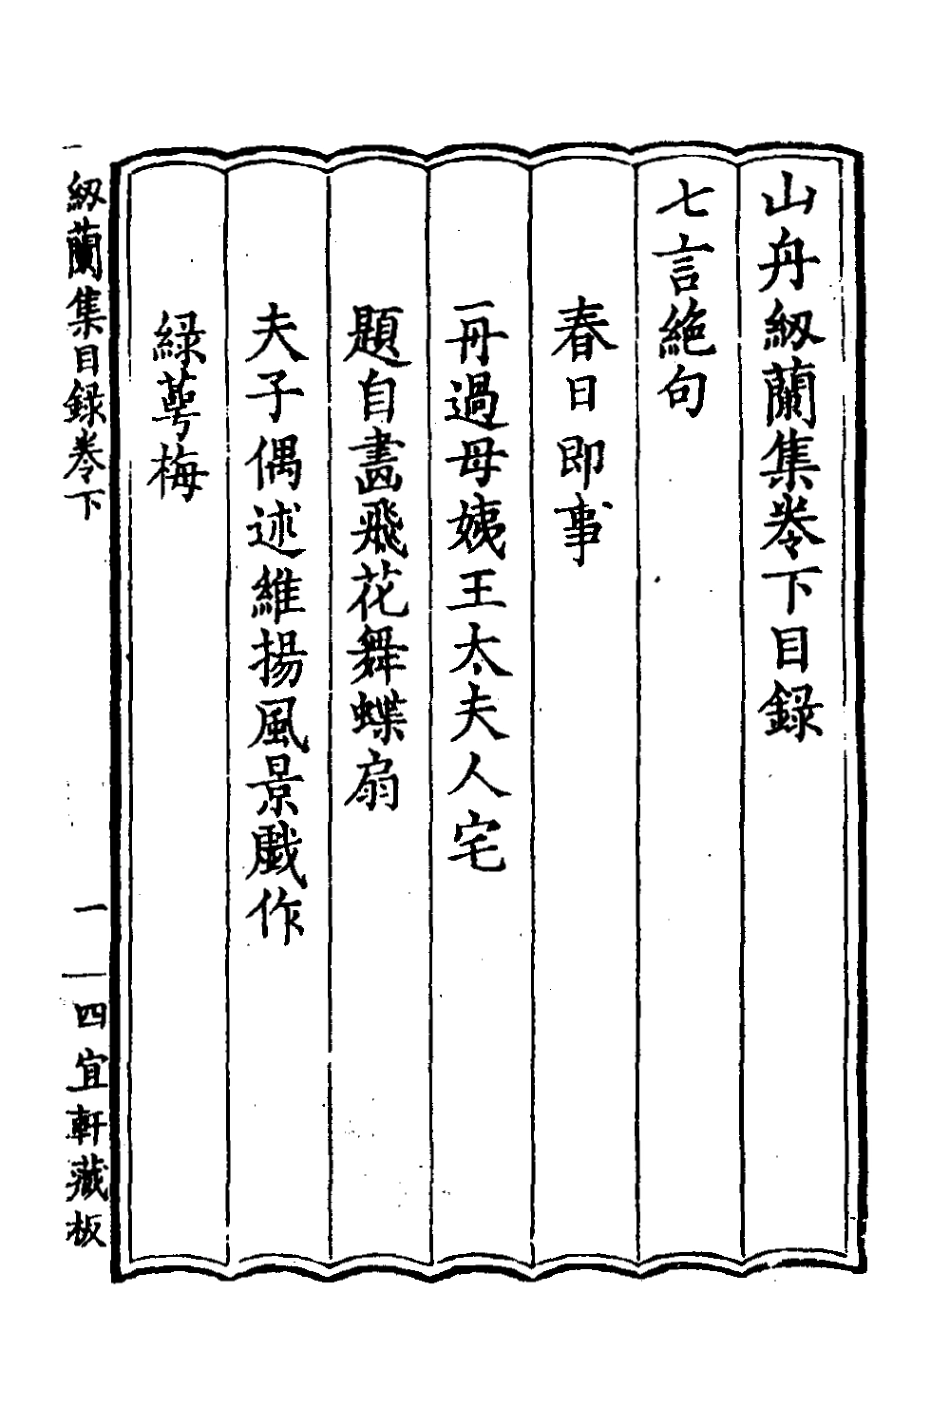 山舟紉蘭集卷下目録
七言絶句
春日即事
再過母姨王太夫人宅
題自畫飛花舞蝶扇
夫子偶述維揚風景戯作
緑萼梅
紉蘭集目録卷下
一
四宜軒藏板